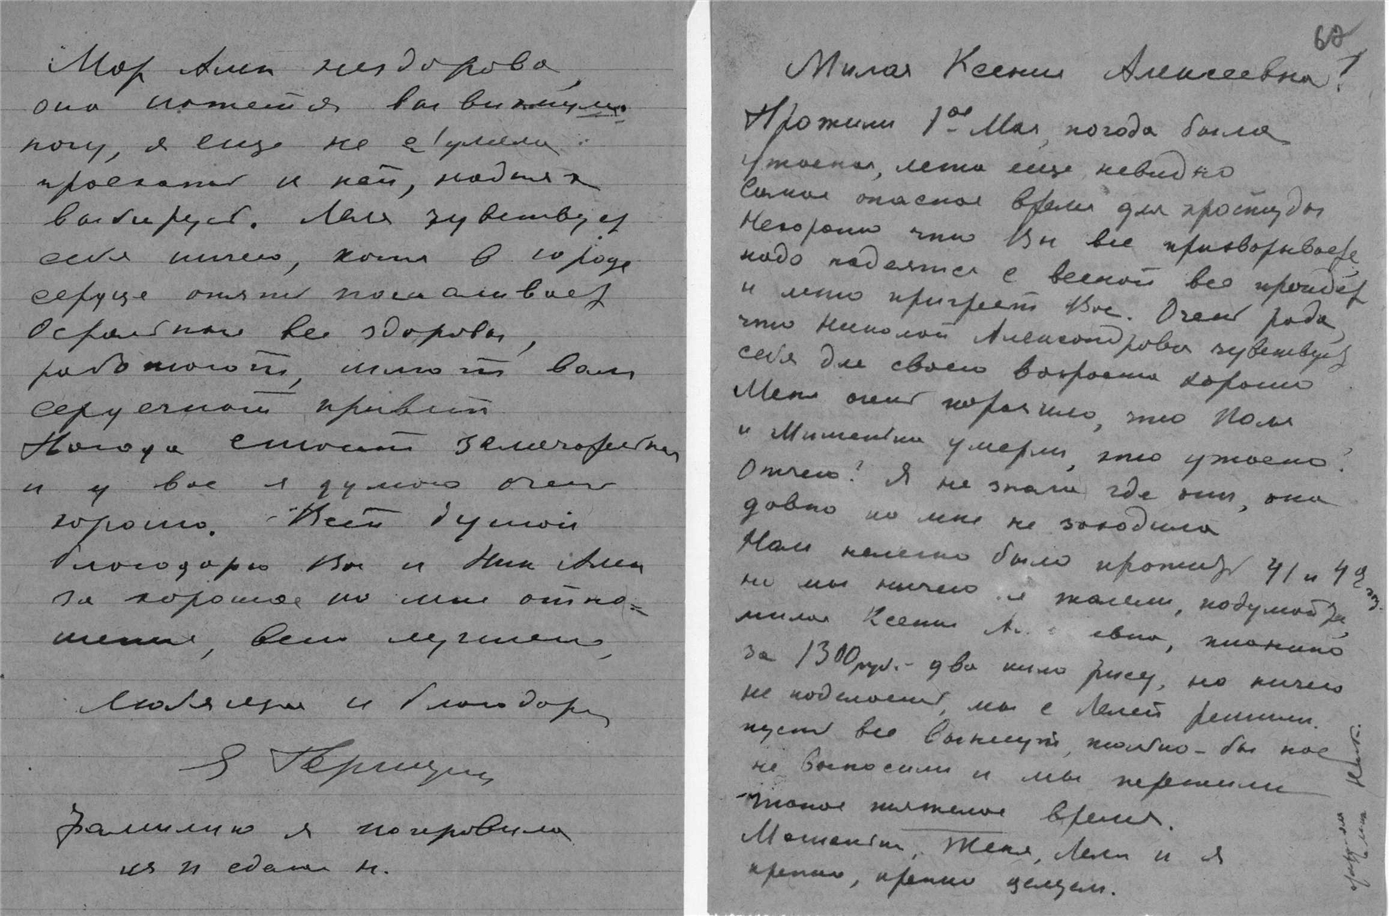 Мар Алек нездорова,
она кажется вывихнула
ногу, я еще не сумела
проехать к ней, надня х
выберусь. Леля чувствует
себя ничего, хотя в городе
сердце опять пошаливает
Остальные все здоровы,
работают, шлют вам
сердечный привет
Погода стоит замечательная
и у вас я думаю очень
хорошо. Всей душой
благодарю Вас и Ник Алек
за хорошее ко мне отно=
шение, всего лучшего,
Любящая и благодар
Я
Фамилию я исправила
из и сдала н.
62
Милая Ксения Алексеевна!
Прожили 1ое Мая, погода была
ужасная, лета еще невидно
Самое опасное время для простуды
Нехорошо что Вы все прихварываете
надо надеятся с весной все пройдет
и лето пригреет Вас. Очень рада,
что Николай Александрович чувствует
себя для своего возраста хорошо
Меня очень поразило, что Поля
и Митенька умерли, это ужасно!
Отчего? Я не знала где они, она
давно ко мне не заходила
Нам нелегко было прожить 41 и 42 г.
но мы ничего не жалели, подумайте,
милая Ксения Ал евна, пианино
за 1300 руб. - два кило рису, но ничего
не поделаешь, мы с Лелей решили.
пусть все вынесут, только-бы нас
не выносили и мы пережили
такое тяжелое время.
Мотенька, Женя, Леля и я
крепко, крепко целуем.
Ник.